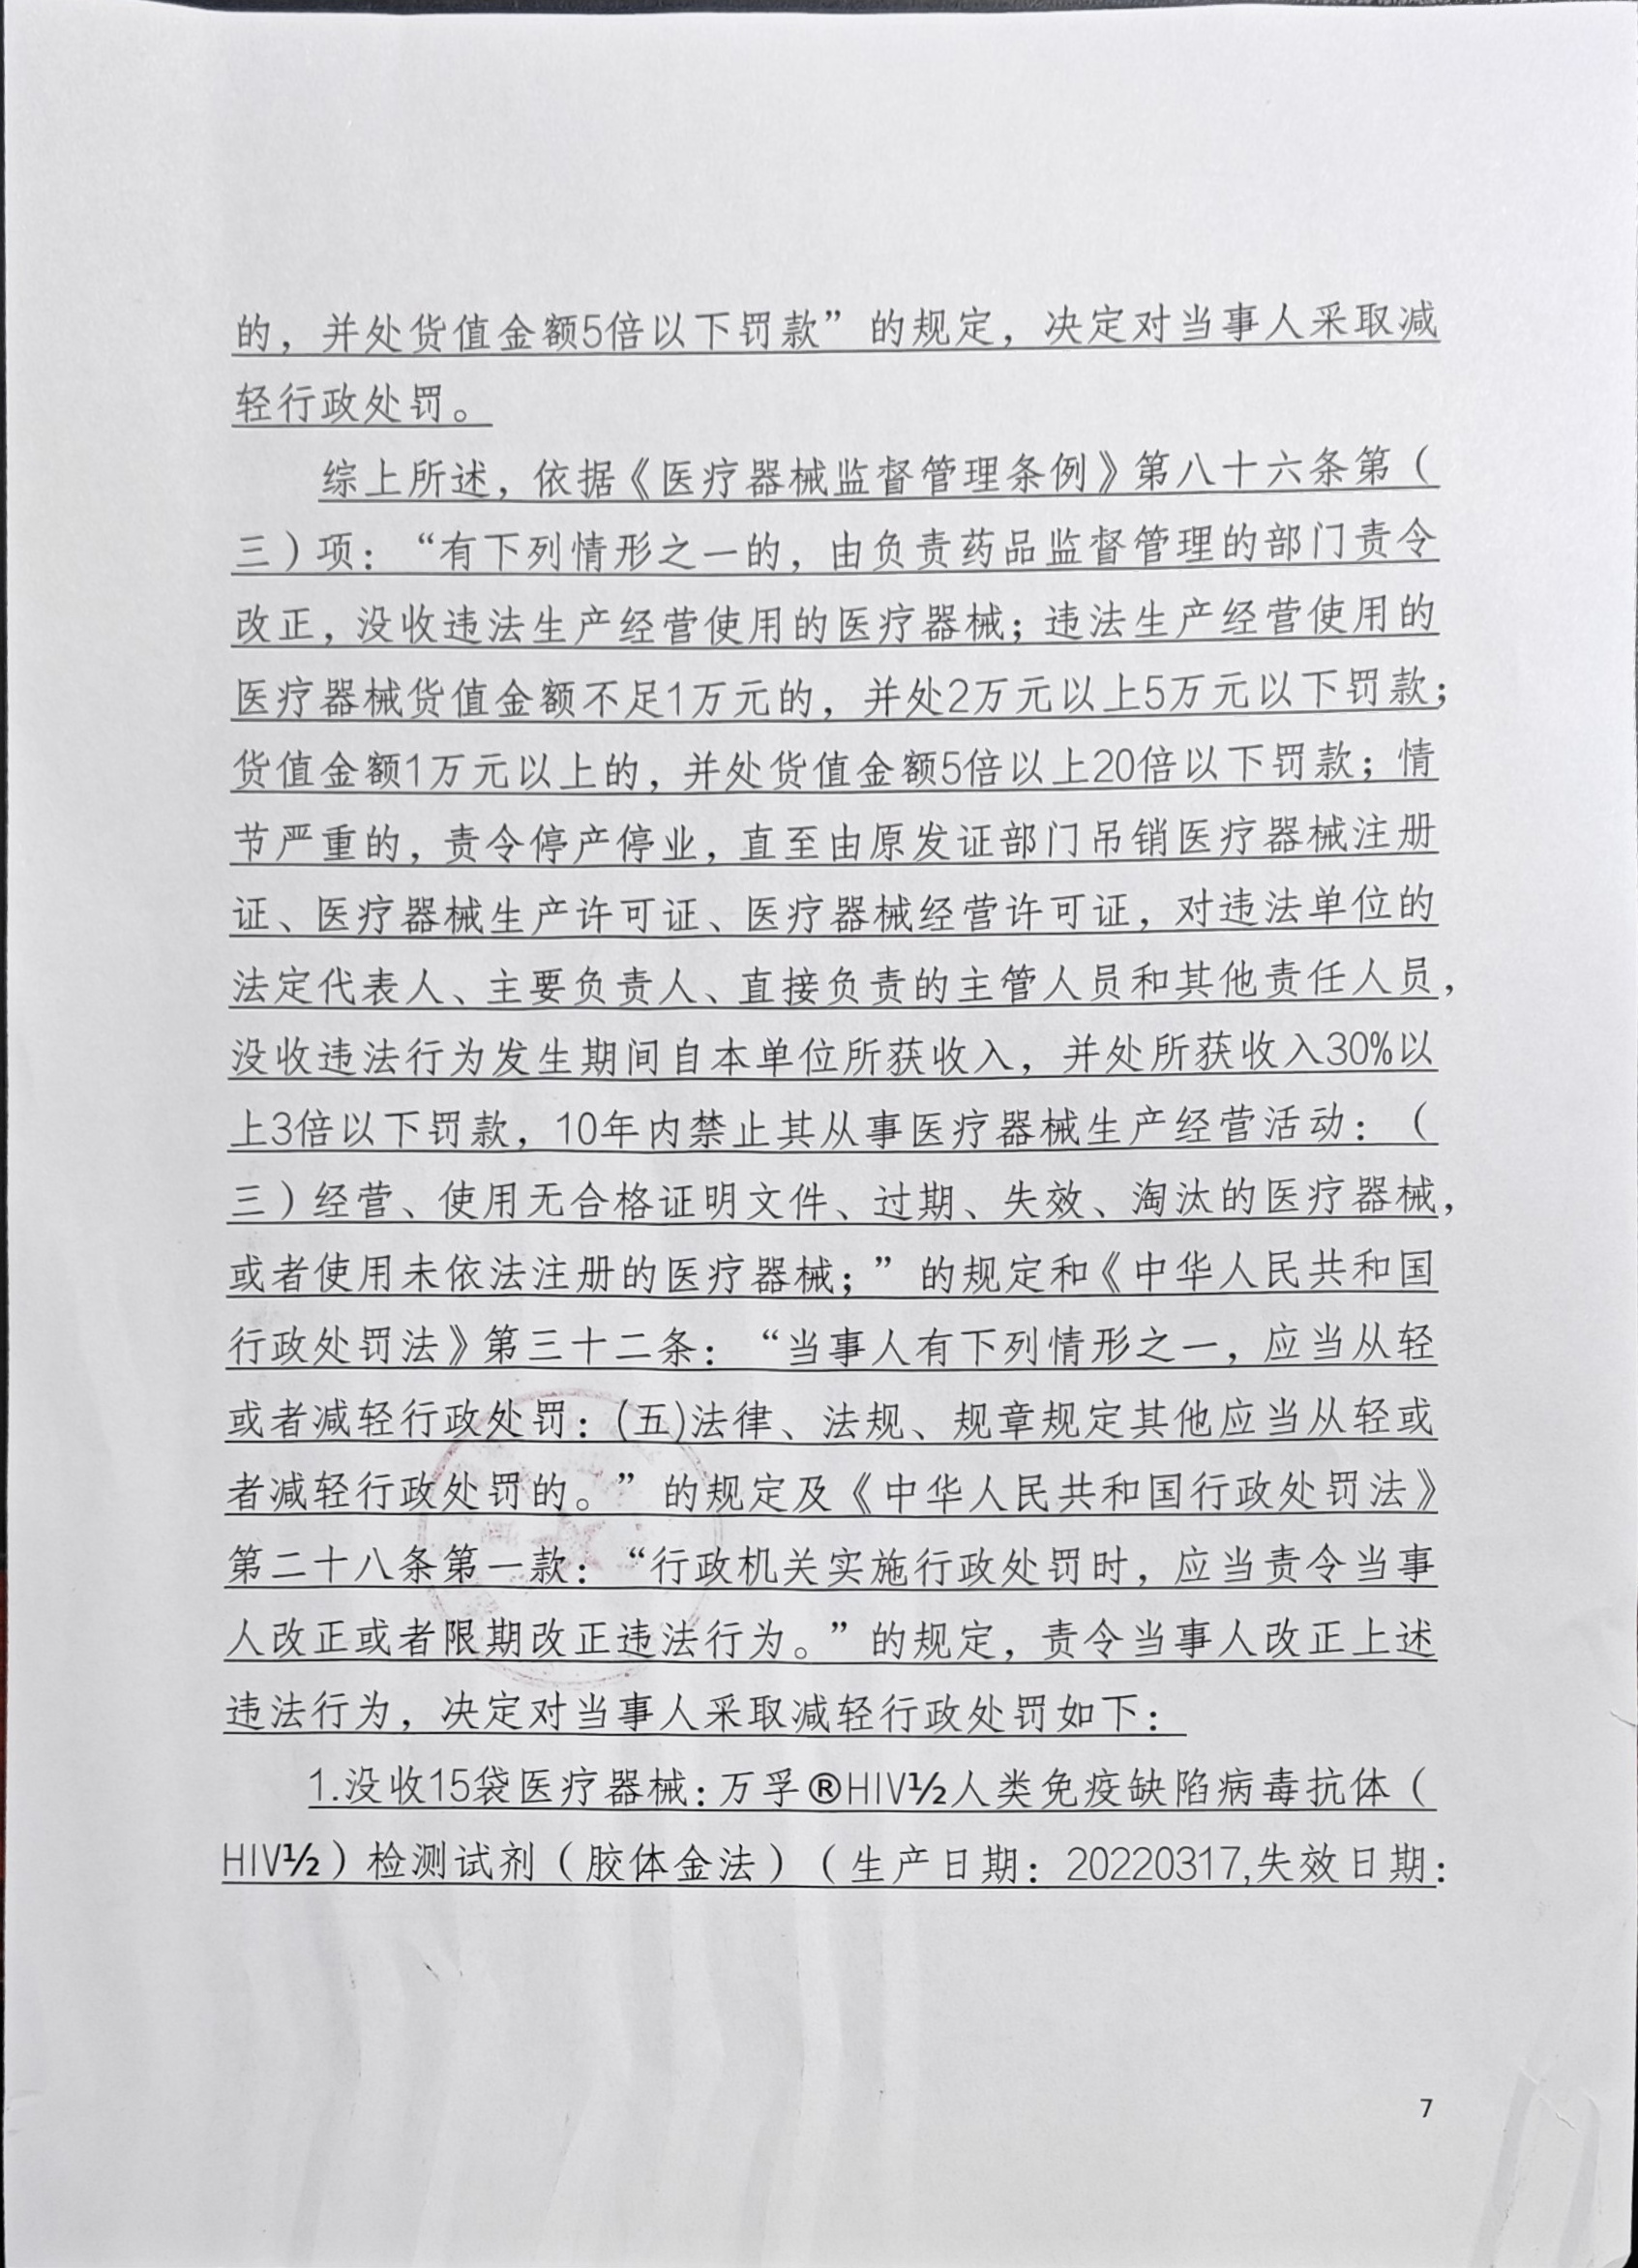 的，并处货值金额5倍以下罚款”的规定，决定对当事人采取减
轻行政处罚。
综上所述，依据《医疗器械监督管理条例》第八十六条第（
三）项：“有下列情形之一的，由负责药品监督管理的部门责令
改正，没收违法生产经营使用的医疗器械；违法生产经营使用的
医疗器械货值金额不足1万元的，并处2万元以上5万元以下罚款；
货值金额1万元以上的，并处货值金额5倍以上20倍以下罚款；情
节严重的，责令停产停业，直至由原发证部门吊销医疗器械注册
证、医疗器械生产许可证、医疗器械经营许可证，对违法单位的
法定代表人、主要负责人、直接负责的主管人员和其他责任人员，
没收违法行为发生期间自本单位所获收入，并处所获收入30%以
上3倍以下罚款，10年内禁止其从事医疗器械生产经营活动：（
三）经营、使用无合格证明文件、过期、失效、淘汰的医疗器械，
或者使用未依法注册的医疗器械；”的规定和《中华人民共和国
行政处罚法》第三十二条：“当事人有下列情形之一，应当从轻
或者减轻行政处罚：(五)法律、法规、规章规定其他应当从轻或
者减轻行政处罚的。”的规定及《中华人民共和国行政处罚法》
第二十八条第一款：“行政机关实施行政处罚时，应当责令当事
人改正或者限期改正违法行为。”的规定，责令当事人改正上述
违法行为，决定对当事人采取减轻行政处罚如下：
1.没收15袋医疗器械：万孚®HIV½人类免疫缺陷病毒抗体（
HIV½）检测试剂（胶体金法）（生产日期：20220317,失效日期：
7